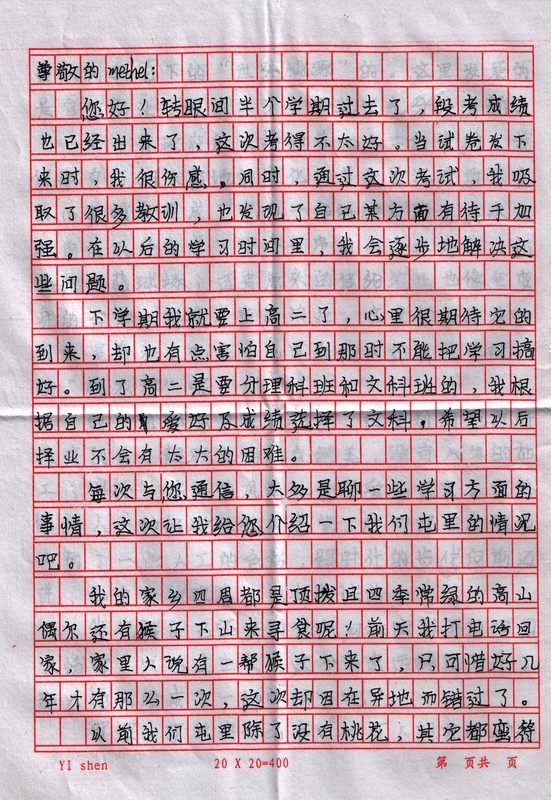 尊敬的methel:
您好！转眼间半个学期过去了，段考成绩
也已经出来了，这次考得不太好。当试卷发下
来时，我很伤感。同时，通过这次考试，我吸
取了很多教训，也发现了自已某方面有待于加
强。在以后的学习时间里，我会逐步地解决这
些问题。
下学期我就要上高二了，心里很期待它的
到来，却也有点害怕自己到那时不能把学习搞
好。到了高二是要分理科班和文科班的，我根
据自己的爱好及成绩选择了文科。希望以后
择业不会有太大的困难。
每次与您通信，大多是聊一些学习方面的
事情，这次让我给您介绍一下我们屯里的情况
吧。
我的家乡四周都是顶拨且四季常绿的高山
偶尔还有猴子下山来寻食呢！前天我打电话回
家，家里人说有一帮猴子下来了，只可惜好几
年才有那么一次，这次却因在异地而错过了。
以前我们屯里除了没有桃花，其它都蛮符
YI shen 20 X 20=400 第 页共 页